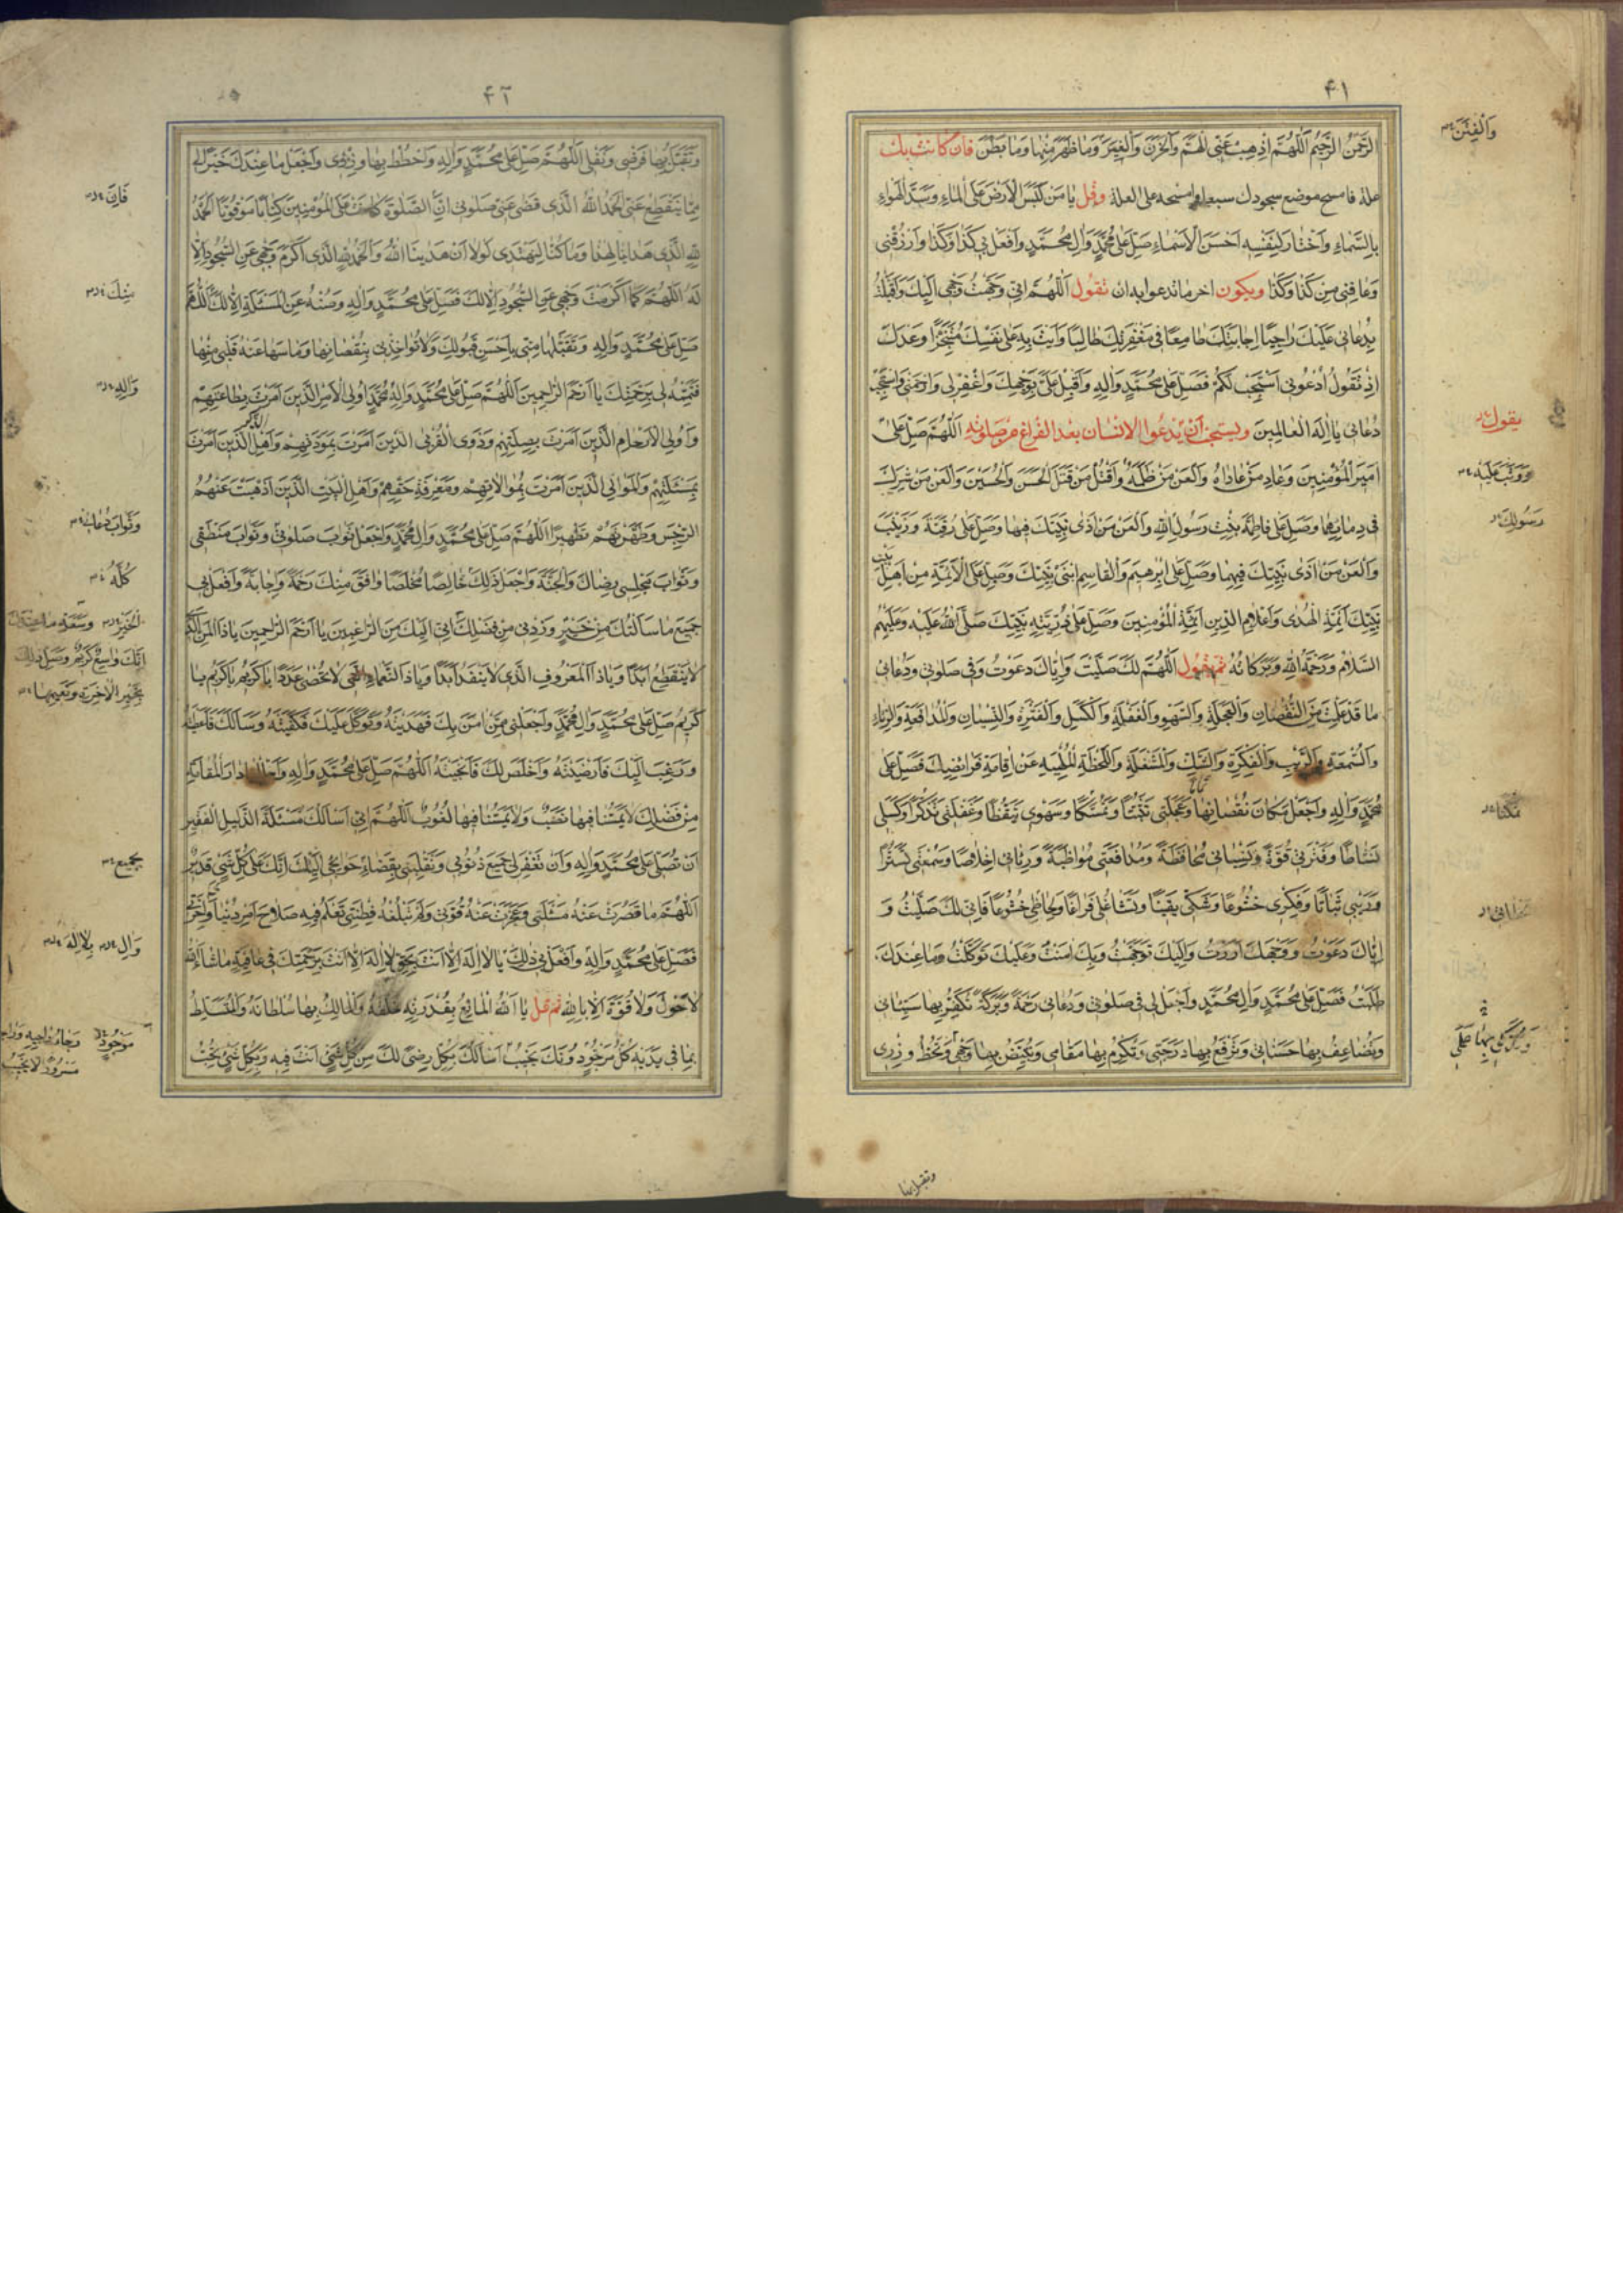 ۴۱
الرَّحْمٰنُ الرَّحِيمُ اَللّٰهُمَّ اَذْهِبْ عَنِّى الْهَمَّ وَالْحُزْنَ وَالْغِيَرَ وَمَا ظَهَرَ مِنْهَا وَمَا بَطَنَ فان كانت بك
وَالْفِتَنَ
علة فامسح موضع سجودك سبعا وامسحه على العلة وقل يَا مَنْ كَبَسَ الْاَرْضَ عَلَى الْمَاءِ وَسَدَّ الْهَوَاءِ
بِالسَّمَاءِ وَاخْتَارَ لِنَفْسِهِ اَحْسَنَ الْاَسْمَاءِ صَلِّ عَلٰى مُحَمَّدٍ وَاٰلِ مُحَمَّدٍ وَافْعَلْ بِى كَذَا وَكَذَا وَارْزُقْنِى
وَعَافِنِى مِنْ كَذَا وَكَذَا ويكون اخر ما تدعوا به ان تقول اَللّٰهُمَّ اِنِّى وَجَّهْتُ وَجْهِى اِلَيْكَ وَاَقْبَلْتُ
بِدُعَائِى عَلَيْكَ رَاجِيًا اِجَابَتَكَ طَامِعًا فِى مَغْفِرَتِكَ طَالِبًا وَاَيْتَ بِهِ عَلٰى نَفْسِكَ مُتَنَجِّزًا وَعْدَكَ
اِذْ تَقُولُ اُدْعُونِى اَسْتَجِبْ لَكُمْ فَصَلِّ عَلٰى مُحَمَّدٍ وَاٰلِهِ وَاَقْبِلْ عَلَىَّ بِوَجْهِكَ وَاغْفِرْ لِى وَارْحَمْنِى وَاسْتَجِبْ
دُعَائِى يَا اِلٰهَ الْعَالَمِينَ ويستحب ان يدعوا الانسان بعد الفراغ من صلوته اَللّٰهُمَّ صَلِّ عَلٰى
يقول
اَمِيرِ الْمُؤْمِنِينَ وَعَادِ مَنْ عَادَاهُ وَالْعَنْ مَنْ ظَلَمَهُ وَاقْتُلْ مَنْ قَتَلَ الْحَسَنَ وَالْحُسَيْنَ وَالْعَنْ مَنْ شَرِكَ
وَوَثَبَ عَلَيْهِ
فِى دِمَائِهِمَا وَصَلِّ عَلٰى فَاطِمَةَ بِنْتِ رَسُولِ اللّٰهِ وَالْعَنْ مَنْ اٰذٰى نَبِيَّكَ فِيهَا وَصَلِّ عَلٰى رُقَيَّةَ وَزَيْنَبَ
رَسُولِكَ
وَالْعَنْ مَنْ اٰذٰى نَبِيَّكَ فِيهِمَا وَصَلِّ عَلٰى اِبْرٰهِيمَ وَالْقَاسِمِ ابْنَىْ نَبِيِّكَ وَصَلِّ عَلَى الْاَئِمَّةِ مِنْ اَهْلِ بَيْتِ
نَبِيِّكَ اَئِمَّةِ الْهُدٰى وَاَعْلَامِ الدِّينِ اَئِمَّةِ الْمُؤْمِنِينَ وَصَلِّ عَلٰى ذُرِّيَّةِ نَبِيِّكَ صَلَّى اللّٰهُ عَلَيْهِ وَعَلَيْهِمُ
السَّلَامُ وَرَحْمَةُ اللّٰهِ وَبَرَكَاتُهُ ثم تقول اَللّٰهُمَّ لَكَ صَلَّيْتُ وَاِيَّاكَ دَعَوْتُ وَفِى صَلٰوتِى وَدُعَائِى
مَا قَدْ عَلِمْتَ مِنَ النُّقْصَانِ وَالْعَجَلَةِ وَالسَّهْوِ وَالْغَفْلَةِ وَالْكَسَلِ وَالْفَتْرَةِ وَالنِّسْيَانِ وَالْمُدَافَعَةِ وَالرِّيَاءِ
وَالسُّمْعَةِ وَالرَّيْبِ وَالْفِكْرَةِ وَالشَّكِّ وَالْمَشْغَلَةِ وَاللَّحْظَةِ الْمُلْهِيَةِ عَنْ اِقَامَةِ فَرَائِضِكَ فَصَلِّ عَلٰى
مُحَمَّدٍ وَاٰلِهِ وَاجْعَلْ مَكَانَ نُقْصَانِهَا وَعَجَلَتِى تَثَبُّتًا وَتَمَسُّكًا وَسَهْوِى تَيَقُّظًا وَغَفْلَتِى تَذَكُّرًا وَكَسَلِى
نَشَاطًا وَفَتْرَتِى قُوَّةً وَنِسْيَانِى مُحَافَظَةً وَمُدَافَعَتِى مُوَاظَبَةً وَرِيَائِى اِخْلَاصًا وَسُمْعَتِى تَسَتُّرًا
وَرَيْبِى ثَبَاتًا وَفِكْرِى خُشُوعًا وَشَكِّى يَقِينًا وَتَشَاغُلِى فَرَاغًا وَلِحَاظِى خُشُوعًا فَاِنِّى لَكَ صَلَّيْتُ وَ
اِيَّاكَ دَعَوْتُ وَوَجْهَكَ اَرَدْتُ وَاِلَيْكَ تَوَجَّهْتُ وَبِكَ اٰمَنْتُ وَعَلَيْكَ تَوَكَّلْتُ وَمَا عِنْدَكَ
طَلَبْتُ فَصَلِّ عَلٰى مُحَمَّدٍ وَاٰلِ مُحَمَّدٍ وَاجْعَلْ لِى فِى صَلٰوتِى وَدُعَائِى رَحْمَةً وَبَرَكَةً تُكَفِّرُ بِهَا سَيِّئَاتِى
وَتُضَاعِفُ بِهَا حَسَنَاتِى وَتَرْفَعُ بِهَا دَرَجَتِى وَتُكْرِمُ بِهَا مَقَامِى وَتُبَيِّضُ بِهَا وَجْهِى وَتَحُطُّ وِزْرِى
وتقبل بها
۴۲
وَتَقَبَّلْ بِهَا فَرْضِى وَنَفْلِى اَللّٰهُمَّ صَلِّ عَلٰى مُحَمَّدٍ وَاٰلِهِ وَاحْطُطْ بِهَا وِزْرِى وَاجْعَلْ مَا عِنْدَكَ خَيْرًا لِى
مِمَّا يَنْقَطِعُ عَنِّى اَلْحَمْدُ لِلّٰهِ الَّذِى قَضٰى عَنِّى صَلٰوتِى اِنَّ الصَّلٰوةَ كَانَتْ عَلَى الْمُؤْمِنِينَ كِتَابًا مَوْقُوتًا اَلْحَمْدُ
فَاِنَّ
لِلّٰهِ الَّذِى هَدَانَا لِهٰذَا وَمَا كُنَّا لِنَهْتَدِىَ لَوْلَا اَنْ هَدٰينَا اللّٰهُ وَالْحَمْدُ لِلّٰهِ الَّذِى اَكْرَمَ وَجْهِى عَنِ السُّجُودِ اِلَّا
لَهُ اَللّٰهُمَّ كَمَا اَكْرَمْتَ وَجْهِى عَنِ السُّجُودِ اِلَّا لَكَ فَصَلِّ عَلٰى مُحَمَّدٍ وَاٰلِهِ وَصُنْهُ عَنِ الْمَسْئَلَةِ اِلَّا لَكَ اَللّٰهُمَّ
مِنْكَ
صَلِّ عَلٰى مُحَمَّدٍ وَاٰلِهِ وَتَقَبَّلْهَا مِنِّى بِاَحْسَنِ قَبُولِكَ وَلَا تُؤَاخِذْنِى بِنُقْصَانِهَا وَمَا سَهَا عَنْهُ قَلْبِى مِنْهَا
فَتَمِّمْهُ لِى بِرَحْمَتِكَ يَا اَرْحَمَ الرَّاحِمِينَ اَللّٰهُمَّ صَلِّ عَلٰى مُحَمَّدٍ وَاٰلِ مُحَمَّدٍ اُولِى الْاَمْرِ الَّذِينَ اَمَرْتَ بِطَاعَتِهِمْ
وَاٰلِهِ
وَاُولِى الْاَرْحَامِ الَّذِينَ اَمَرْتَ بِصِلَتِهِمْ وَذَوِى الْقُرْبٰى الَّذِينَ اَمَرْتَ بِمَوَدَّتِهِمْ وَاَهْلِ الذِّكْرِ الَّذِينَ اَمَرْتَ
بِمَسْئَلَتِهِمْ وَالْمَوَالِى الَّذِينَ اَمَرْتَ بِمُوَالَاتِهِمْ وَمَعْرِفَةِ حَقِّهِمْ وَاَهْلِ الْبَيْتِ الَّذِينَ اَذْهَبْتَ عَنْهُمُ
الرِّجْسَ وَطَهَّرْتَهُمْ تَطْهِيرًا اَللّٰهُمَّ صَلِّ عَلٰى مُحَمَّدٍ وَاٰلِ مُحَمَّدٍ وَاجْعَلْ ثَوَابَ صَلٰوتِى وَثَوَابَ مَنْطِقِى
وَثَوَابَ دُعَائِى
وَثَوَابَ مَجْلِسِى رِضَاكَ وَالْجَنَّةَ وَاجْعَلْ ذٰلِكَ خَالِصًا مُخْلَصًا وَافَقَ مِنْكَ رَحْمَةً وَاِجَابَةً وَافْعَلْ بِى
كُلَّهُ
جَمِيعَ مَا سَاَلْتُكَ مِنْ خَيْرٍ وَزِدْنِى مِنْ فَضْلِكَ اِنِّى اِلَيْكَ مِنَ الرَّاغِبِينَ يَا اَرْحَمَ الرَّاحِمِينَ يَا ذَا الْمَنِّ الَّذِى
الْخَيْرِ وَسَعَةِ مَا عِنْدَكَ
اِنَّكَ وَاسِعٌ كَرِيمٌ وَصِلْ ذٰلِكَ
بِخَيْرِ الْاٰخِرَةِ وَنَعِيمِهَا
لَا يَنْقَطِعُ اَبَدًا وَيَا ذَا الْمَعْرُوفِ الَّذِى لَا يَنْفَدُ اَبَدًا وَيَا ذَا النَّعْمَاءِ الَّتِى لَا تُحْصٰى عَدَدًا يَا كَرِيمُ يَا كَرِيمُ يَا
كَرِيمُ صَلِّ عَلٰى مُحَمَّدٍ وَاٰلِ مُحَمَّدٍ وَاجْعَلْنِى مِمَّنْ اٰمَنَ بِكَ فَهَدَيْتَهُ وَتَوَكَّلَ عَلَيْكَ فَكَفَيْتَهُ وَسَاَلَكَ فَاَعْطَيْتَهُ
وَرَغِبَ اِلَيْكَ فَاَرْضَيْتَهُ وَاَخْلَصَ لَكَ فَاَنْجَيْتَهُ اَللّٰهُمَّ صَلِّ عَلٰى مُحَمَّدٍ وَاٰلِهِ وَاَحْلِلْنَا دَارَ الْمُقَامَةِ
مِنْ فَضْلِكَ لَا يَمَسُّنَا فِيهَا نَصَبٌ وَلَا يَمَسُّنَا فِيهَا لُغُوبٌ اَللّٰهُمَّ اِنِّى اَسْاَلُكَ مَسْئَلَةَ الذَّلِيلِ الْفَقِيرِ
اَنْ تُصَلِّىَ عَلٰى مُحَمَّدٍ وَاٰلِهِ وَاَنْ تَغْفِرَ لِى جَمِيعَ ذُنُوبِى وَتَقْلِبَنِى بِقَضَاءِ حَوَائِجِى اِلَيْكَ اِنَّكَ عَلٰى كُلِّ شَىْءٍ قَدِيرٌ
بِجَمِيعِ
اَللّٰهُمَّ مَا قَصُرَتْ عَنْهُ مَسْئَلَتِى وَعَجَزَتْ عَنْهُ قُوَّتِى وَلَمْ تَبْلُغْهُ فِطْنَتِى تَعْلَمُ فِيهِ صَلَاحَ اَمْرِ دُنْيَاىَ وَاٰخِرَتِى
فَصَلِّ عَلٰى مُحَمَّدٍ وَاٰلِهِ وَافْعَلْ بِى ذٰلِكَ يَا لَا اِلٰهَ اِلَّا اَنْتَ بِحَقِّ لَا اِلٰهَ اِلَّا اَنْتَ بِرَحْمَتِكَ فِى عَافِيَةٍ مَا شَاءَ اللّٰهُ
وَاٰلِ بِلَا اِلٰهَ
لَا حَوْلَ وَلَا قُوَّةَ اِلَّا بِاللّٰهِ ثم قل يَا اَللّٰهُ الْمَانِعُ بِقُدْرَتِهِ خَلْقَهُ وَالْمَالِكُ بِهَا سُلْطَانَهُ وَالْمُتَسَلِّطُ
بِمَا فِى يَدَيْهِ كُلُّ مَرْجُوٍّ دُونَكَ يَخِيبُ اَسْاَلُكَ بِكُلِّ رِضًى لَكَ مِنْ كُلِّ شَىْءٍ اَنْتَ فِيهِ وَبِكُلِّ شَىْءٍ تُحِبُّ
مَوْجُودٍ